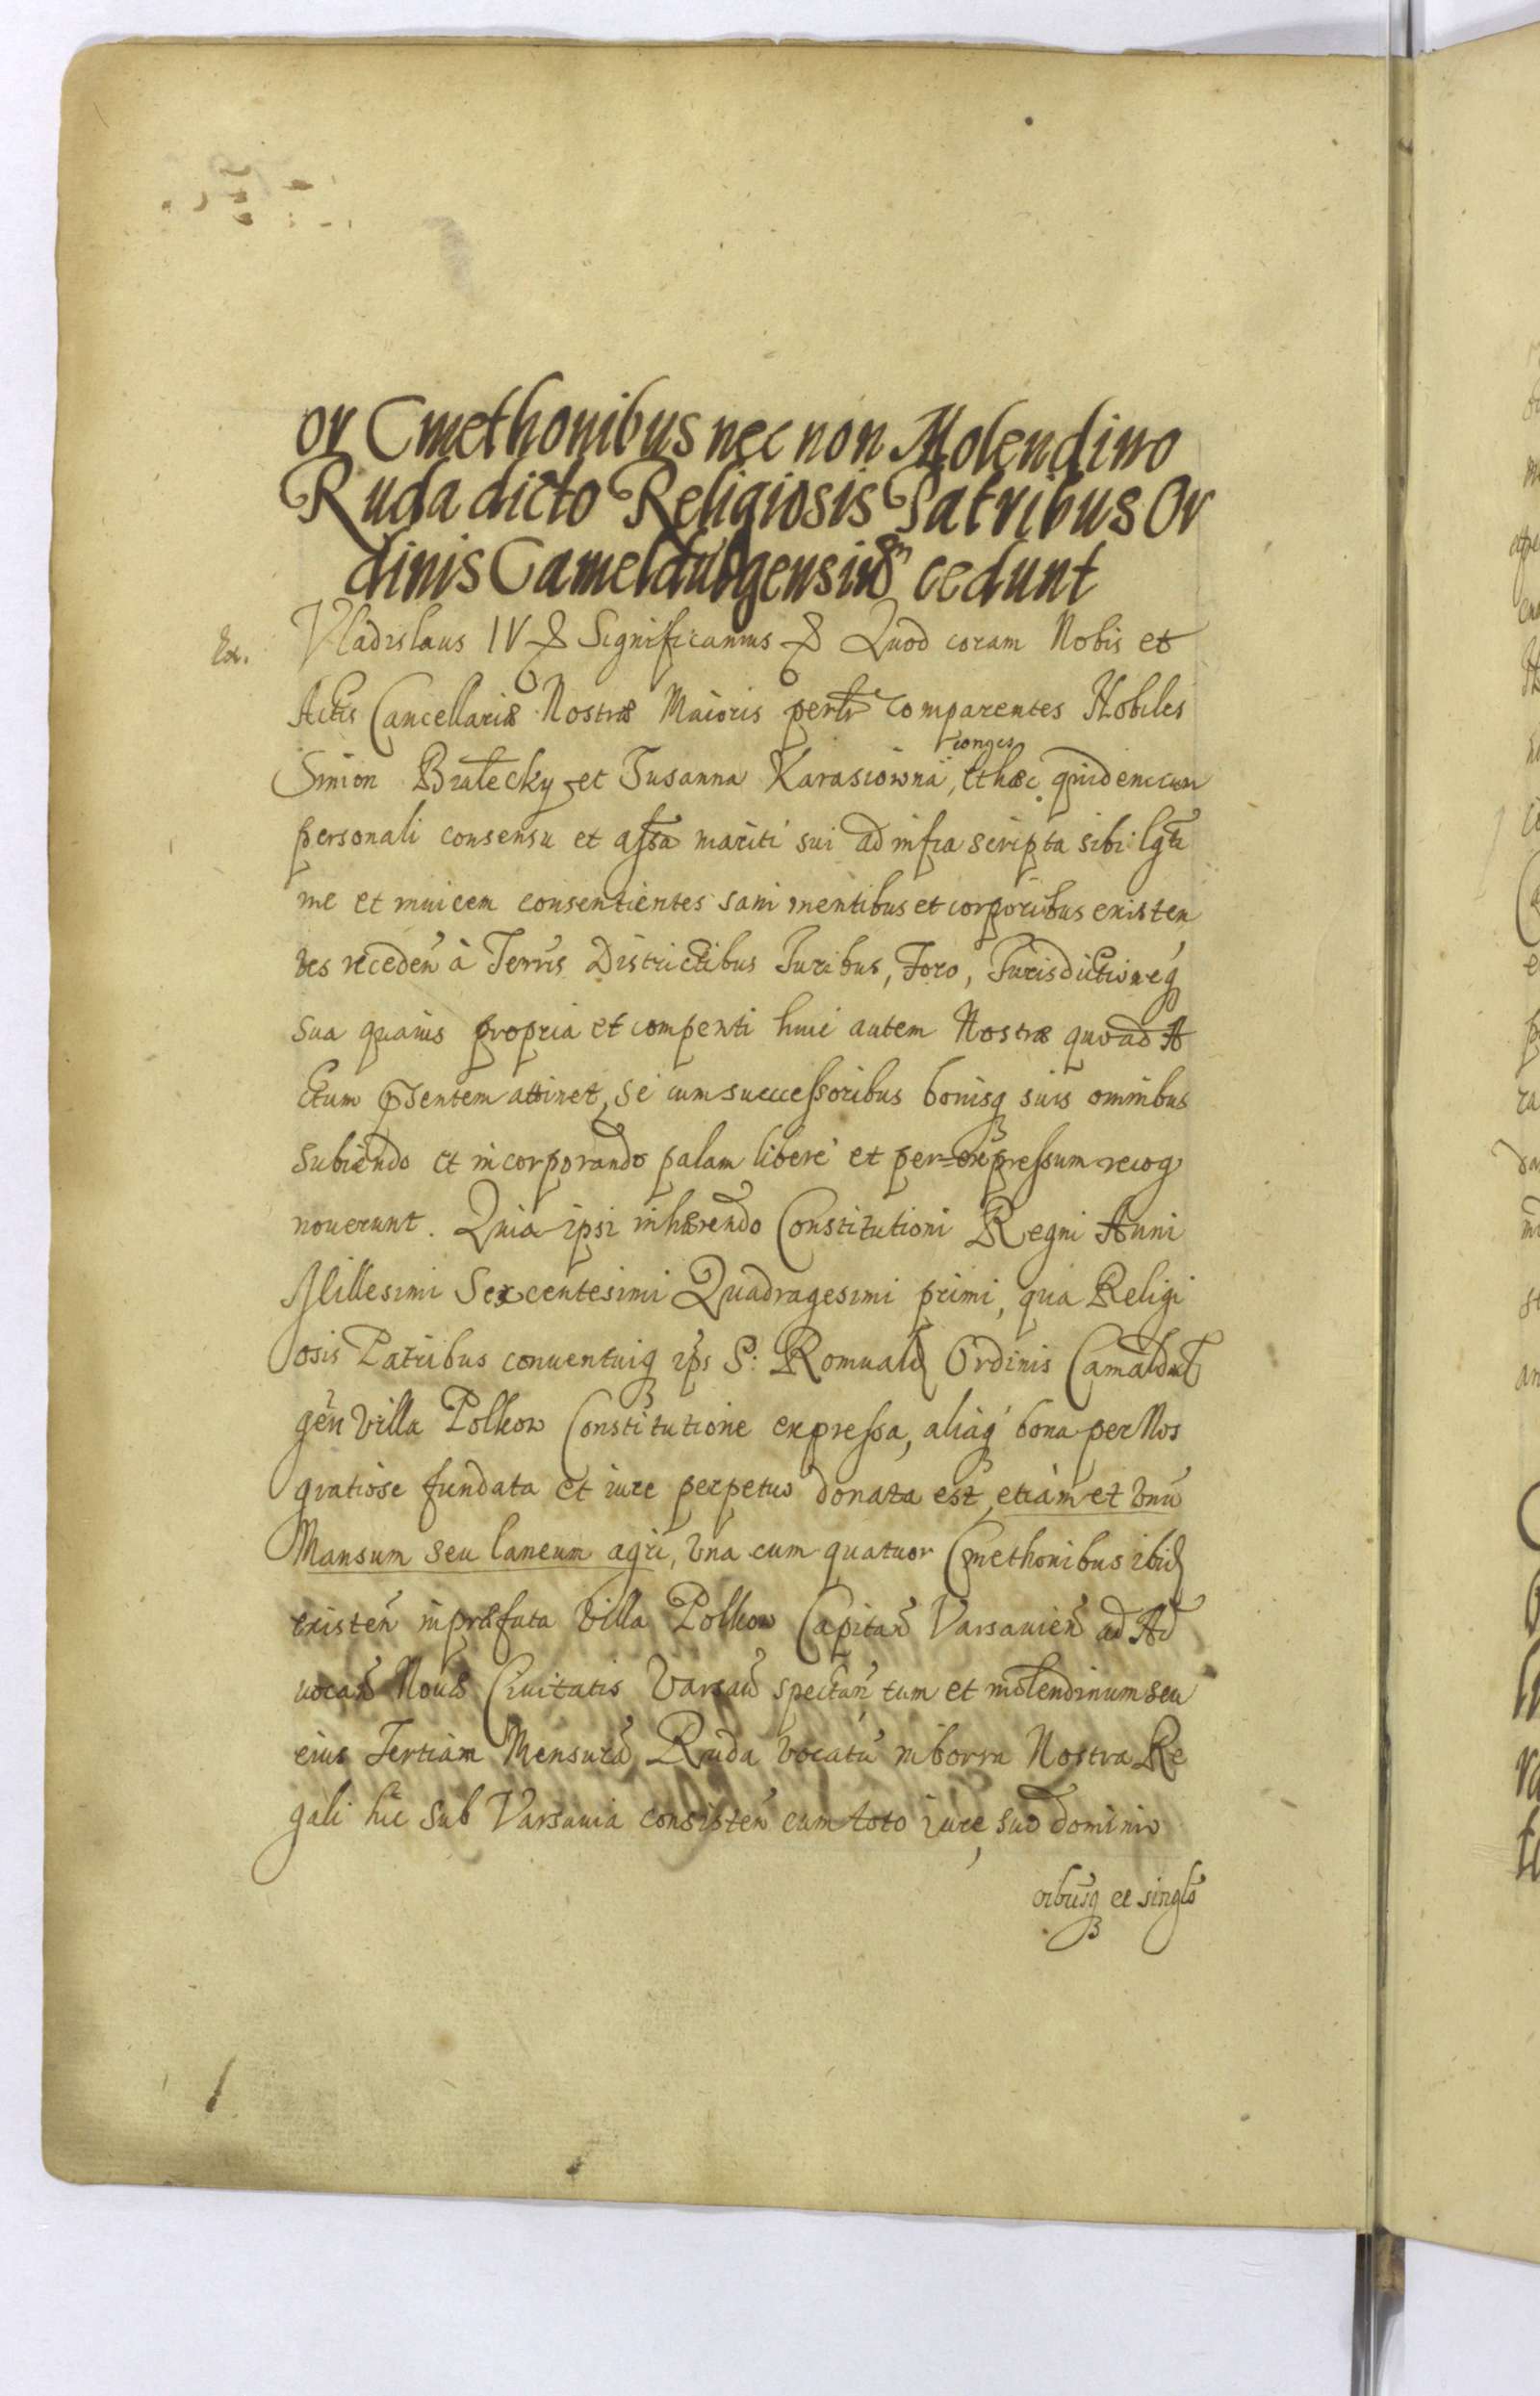 or Cmethonibus nec non Molendino
Ruda dicto Religiosis Patribus Or
dinis Cameldulgensium cedunt
Ex. Vladislaus IV & Significamus & Quod coram Nobis et
Actis Cancellariæ Nostræ Maioris perlr comparentes Nobiles
conges
Simon Bratecky et Susanna Karasiowna, et hæc quidem cum
personali consensu et assa mariti sui ad infra scripta sibi lgti
me et inuicem consentientes sani mentibus et corporibus existen
tes receden à Terris Districtibus Juribus, Foro, Jurisdictioneq
sua quauis propria et compenti huic autem Nostræ quo ad A
ctum pñsentem attinet, se cum successoribus bonisq suis omnibus
subiendo et incorporando palam libere et per expressum recog
nouerunt. Quia ipsi inhærendo Constitutioni Regni Anni
Millesimi Sexcentesimi Quadragesimi primi, qua Religi
osis Patribus conuentuiq ips S: Romualdi Ordinis Camaldul
gen villa Polkow Constitutione expressa, aliaq bona per Nos
gratiose fundata et iure perpetuo donata est, etiam et vnu
Mansum seu laneum agri, vna cum quatuor Cmethonibus ibid
existen in præfata villa Polkow Capitan Varsauien ad Ad
uocan Nouæ Ciuitatis Varsau spectan tum et molendinum seu
eius Tertiam Mensura, Ruda vocatu in borra Nostra Re
gali hic sub Varsauia consisten cum toto iure, suo dominio
oibusq et singlis